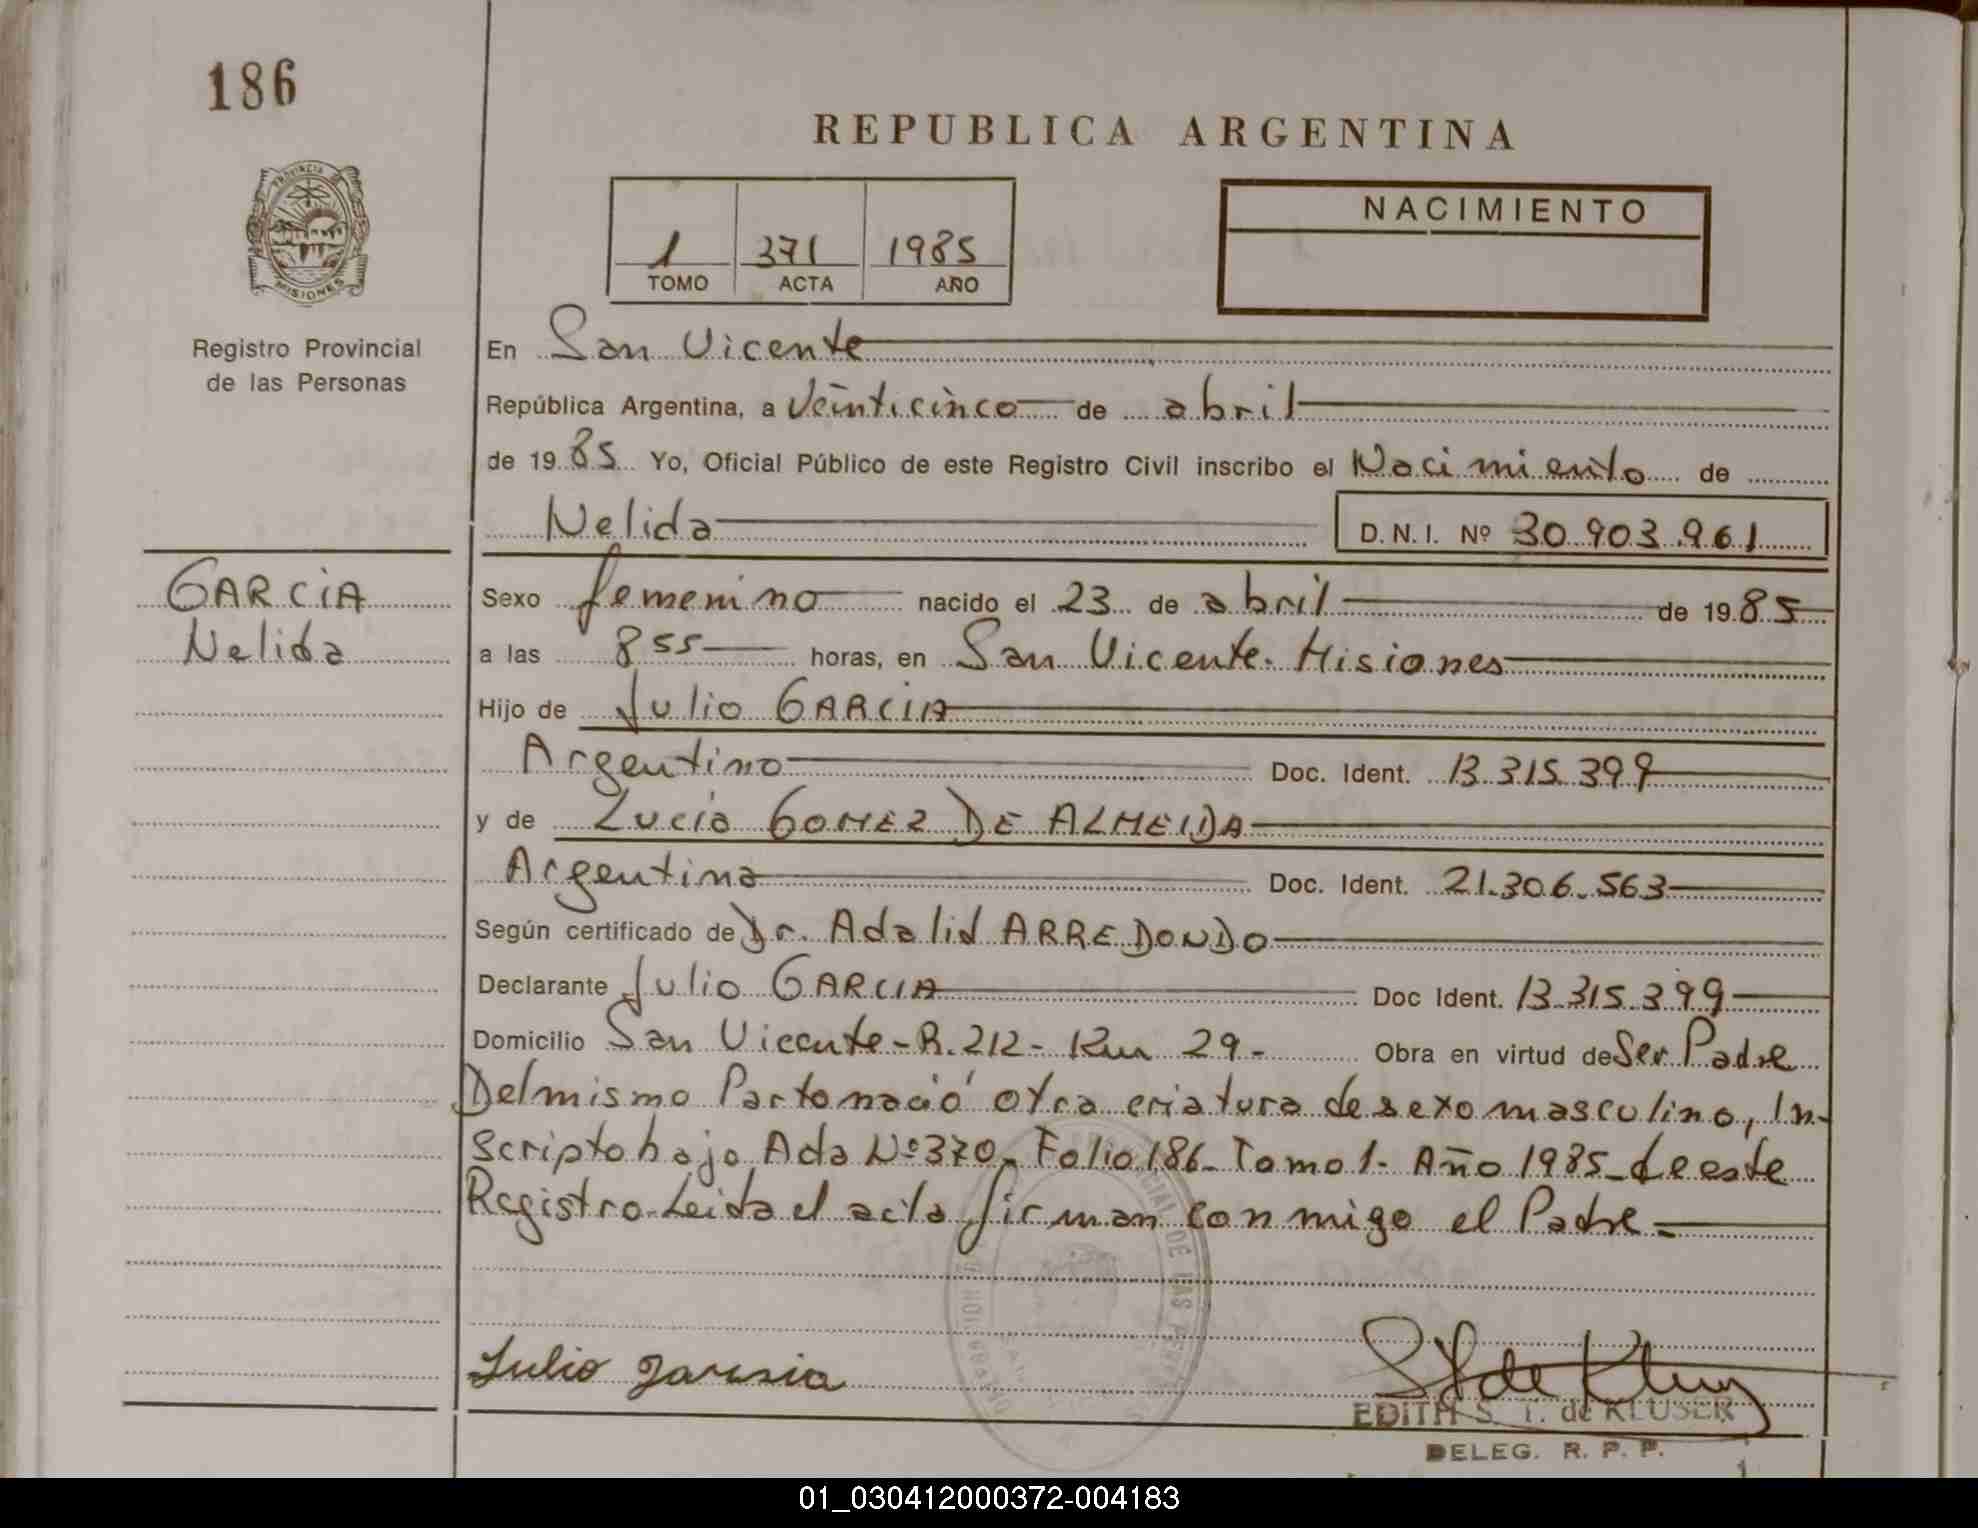 186
REPUBLICA ARGENTINA
PROVINCIA DE
MISIONES
Registro Provincial
de las Personas
1 371 1985
TOMO ACTA AÑO
NACIMIENTO
En San Vicente
República Argentina, a Veinticinco de abril
de 1985 Yo, Oficial Público de este Registro Civil inscribo el Nacimiento de
Nelida D.N.I. Nº 30.903.961
GARCIA
Nelida
Sexo femenino nacido el 23 de abril de 1985
a las 8 55 horas, en San Vicente. Misiones
Hijo de Julio GARCIA
Argentino Doc. Ident. 13.315.399
y de Lucia GOMEZ DE ALMEIDA
Argentina Doc. Ident. 21.306.563
Según certificado de Dr. Adalid ARREDONDO
Declarante Julio GARCIA Doc Ident. 13.315.399
Domicilio San Vicente - R. 212 - Km 29 - Obra en virtud de Ser Padre
Del mismo Parto nació otra criatura de sexo masculino, In-
scripto bajo Acta Nº 370 - Folio 186 - Tomo 1 - Año 1985 - de este
Registro - Leida el acta firman conmigo el Padre -
Julio Garcia
EDITH S. T. de KLUSER
DELEG. R. P. P.
01_030412000372-004183